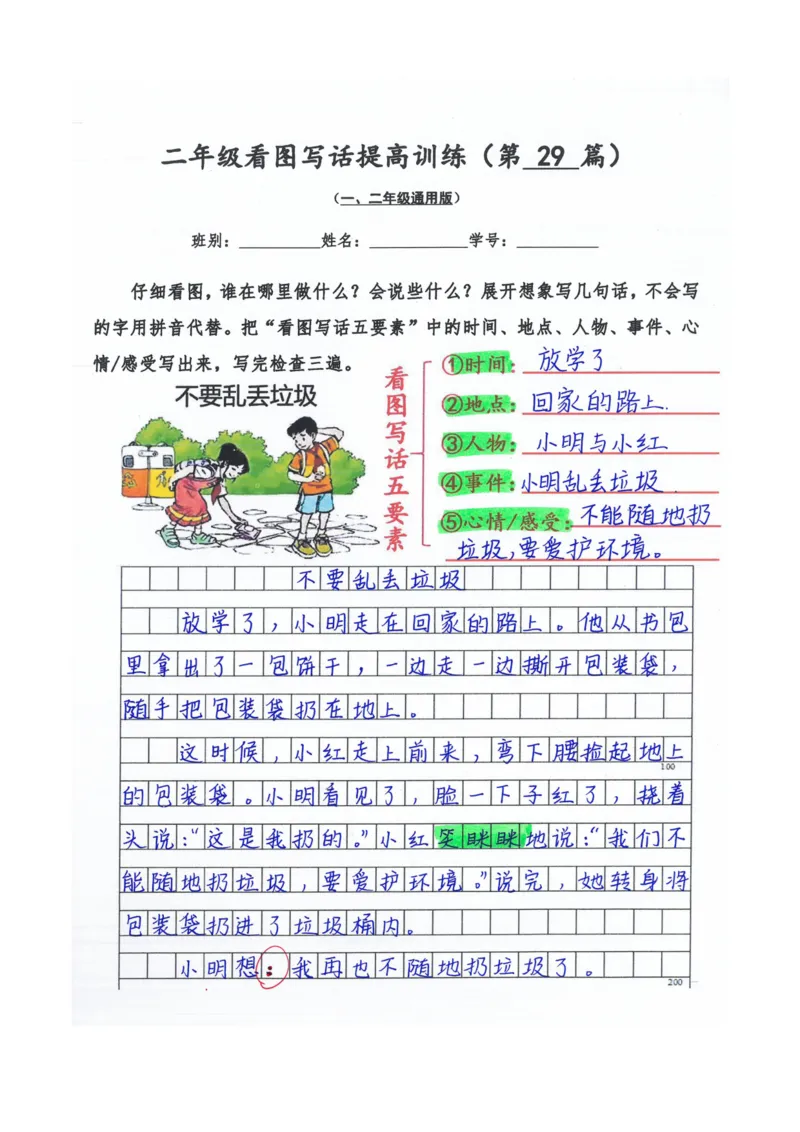 二年级看图写话提高训练（第 29 篇）
（一、二年级通用版）
班别：__________姓名：____________学号：__________
仔细看图，谁在哪里做什么？会说些什么？展开想象写几句话，不会写
的字用拼音代替。把“看图写话五要素”中的时间、地点、人物、事件、心
情/感受写出来，写完检查三遍。
不要乱丢垃圾
看图写话五要素
①时间：放学了
②地点：回家的路上.
③人物：小明与小红
④事件：小明乱丢垃圾.
⑤心情/感受：不能随地扔
垃圾，要爱护环境。
不要乱丢垃圾
放学了，小明走在回家的路上。他从书包
里拿出了一包饼干，一边走一边撕开包装袋，
随手把包装袋扔在地上。
这时候，小红走上前来，弯下腰捡起地上
100
的包装袋。小明看见了，脸一下子红了，挠着
头说：“这是我扔的。”小红笑眯眯地说：“我们不
能随地扔垃圾，要爱护环境。”说完，她转身将
包装袋扔进了垃圾桶内。
小明想：我再也不随地扔垃圾了。
200